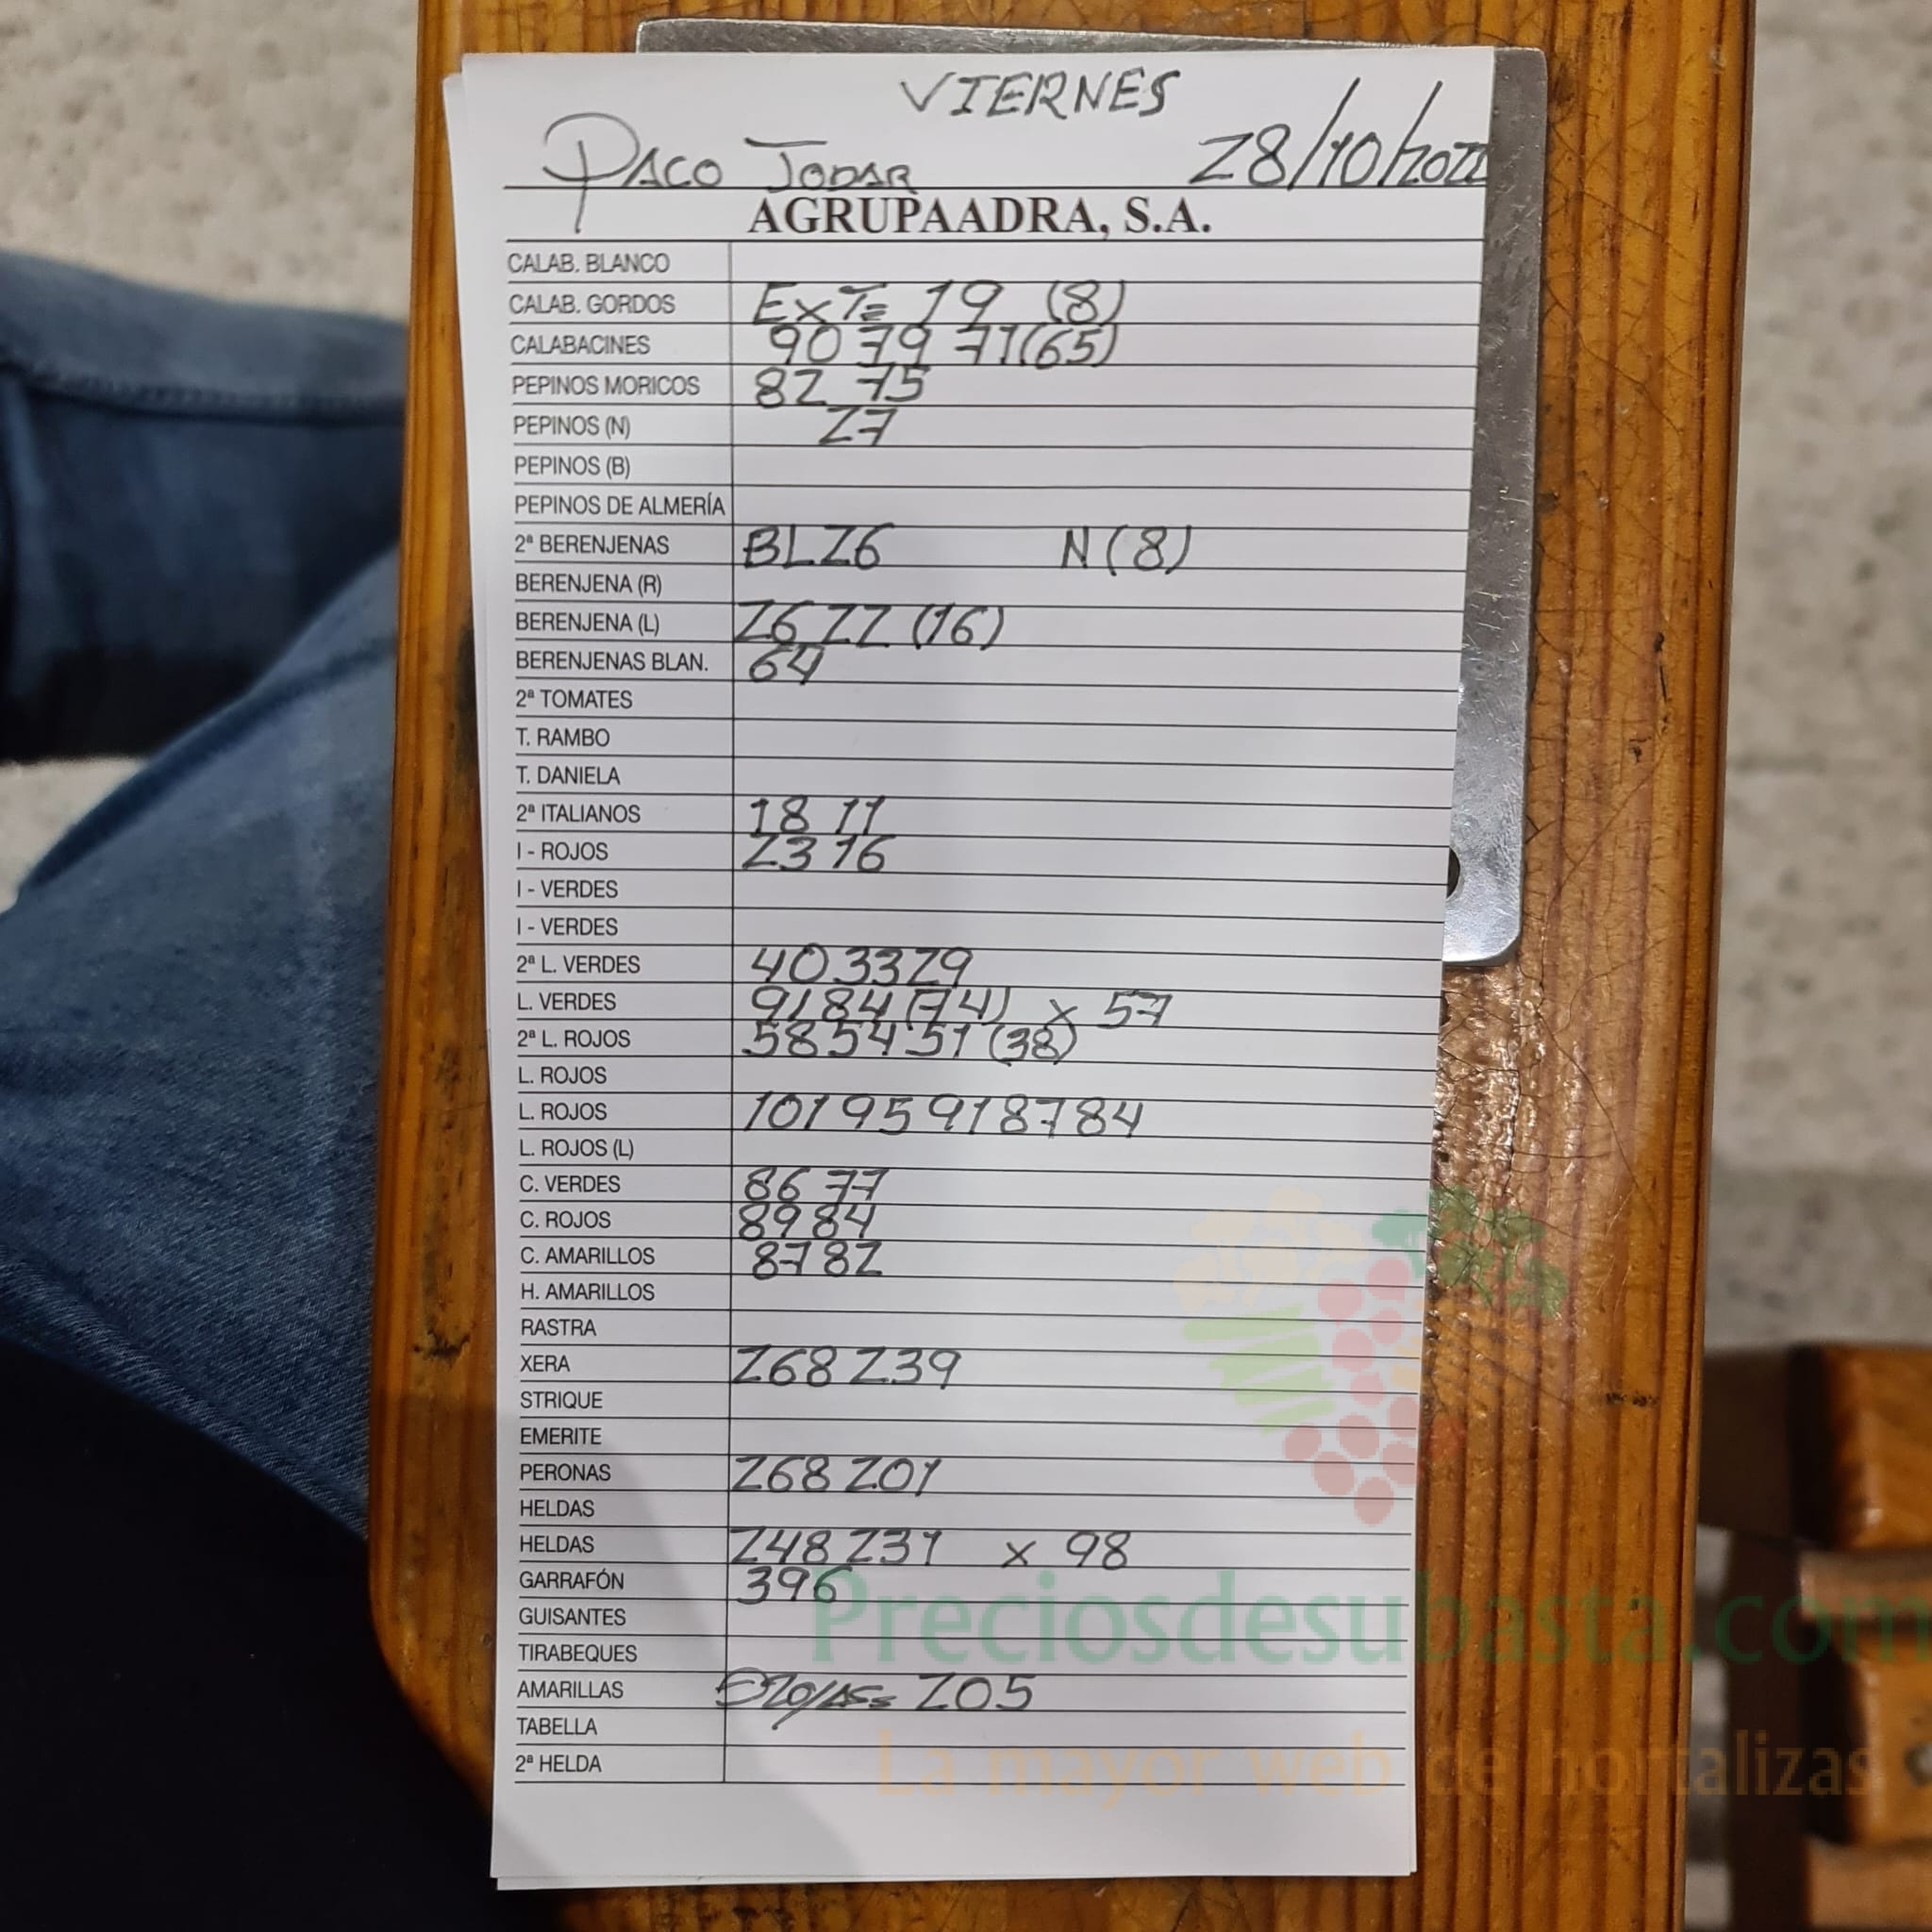 VIERNES
PACO JODAR 28/10/2022
AGRUPAADRA, S.A.
CALAB. BLANCO
CALAB. GORDOS EXT= 19 (8)
CALABACINES 90 79 71 (65)
PEPINOS MORICOS 82 75
PEPINOS (N) 27
PEPINOS (B)
PEPINOS DE ALMERÍA
2ª BERENJENAS BL 26 N (8)
BERENJENA (R)
BERENJENA (L) 26 22 (16)
BERENJENAS BLAN. 64
2ª TOMATES
T. RAMBO
T. DANIELA
2ª ITALIANOS 18 11
I - ROJOS 23 16
I - VERDES
I - VERDES
2ª L. VERDES 40 33 29
L. VERDES 91 84 (74) x 57
2ª L. ROJOS 58 54 51 (38)
L. ROJOS
L. ROJOS 101 95 91 87 84
L. ROJOS (L)
C. VERDES 86 77
C. ROJOS 89 84
C. AMARILLOS 87 82
H. AMARILLOS
RASTRA
XERA 268 239
STRIQUE
EMERITE
PERONAS 268 201
HELDAS
HELDAS 248 231 x 98
GARRAFÓN 396
GUISANTES
TIRABEQUES
AMARILLAS 205
TABELLA
2ª HELDA
Preciosdesubasta.com
La mayor web de hortalizas